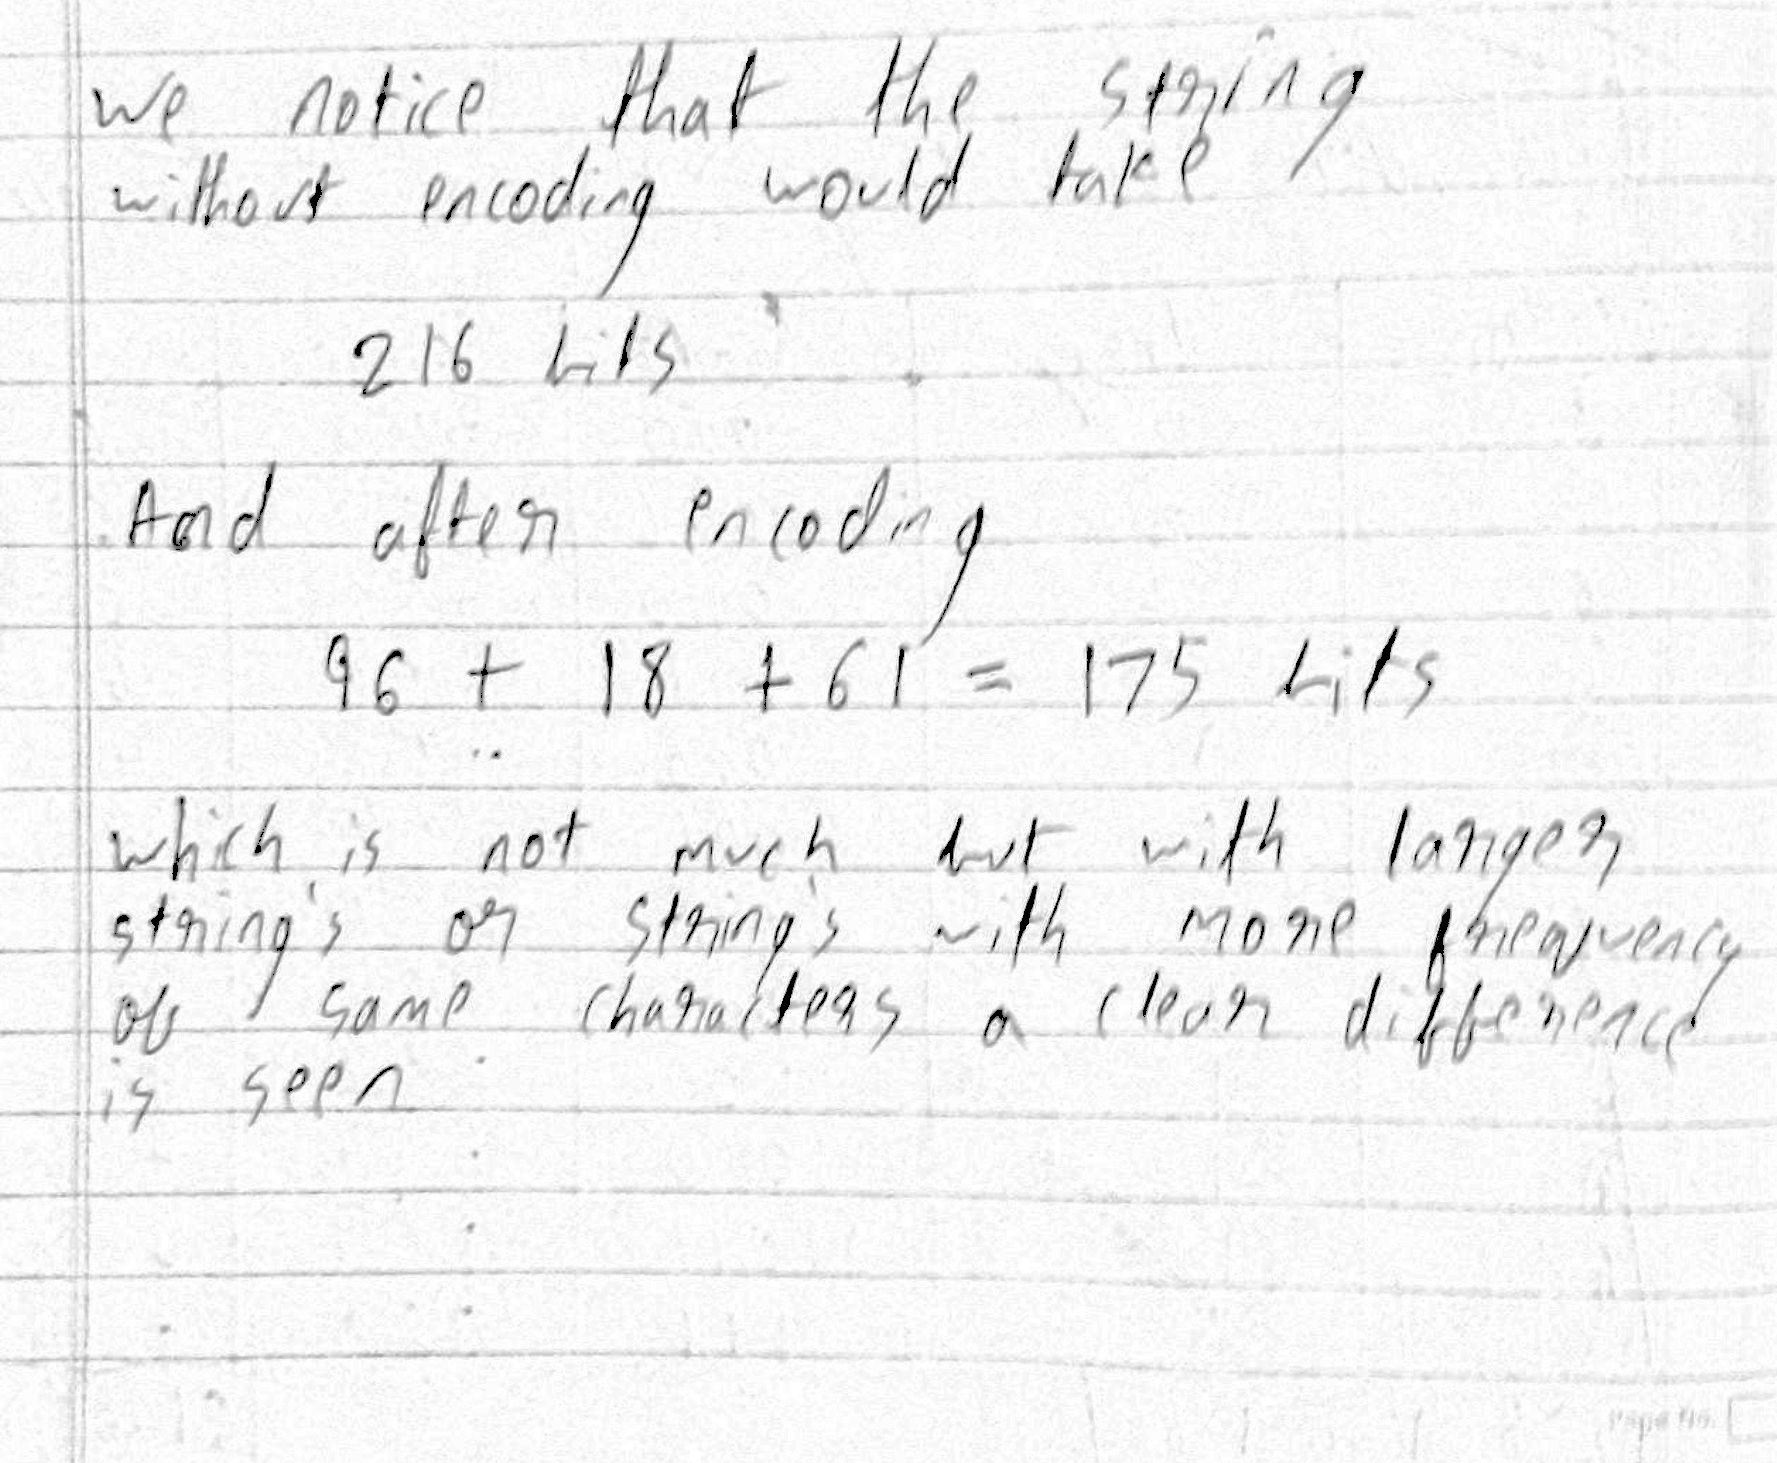 We notice that the string
without encoding would take
216 bits
And after encoding
96 + 18 + 61 = 175 bits
which is not much but with larger
string's or string's with more frequency
of same characters a clear difference
is seen
Page No.